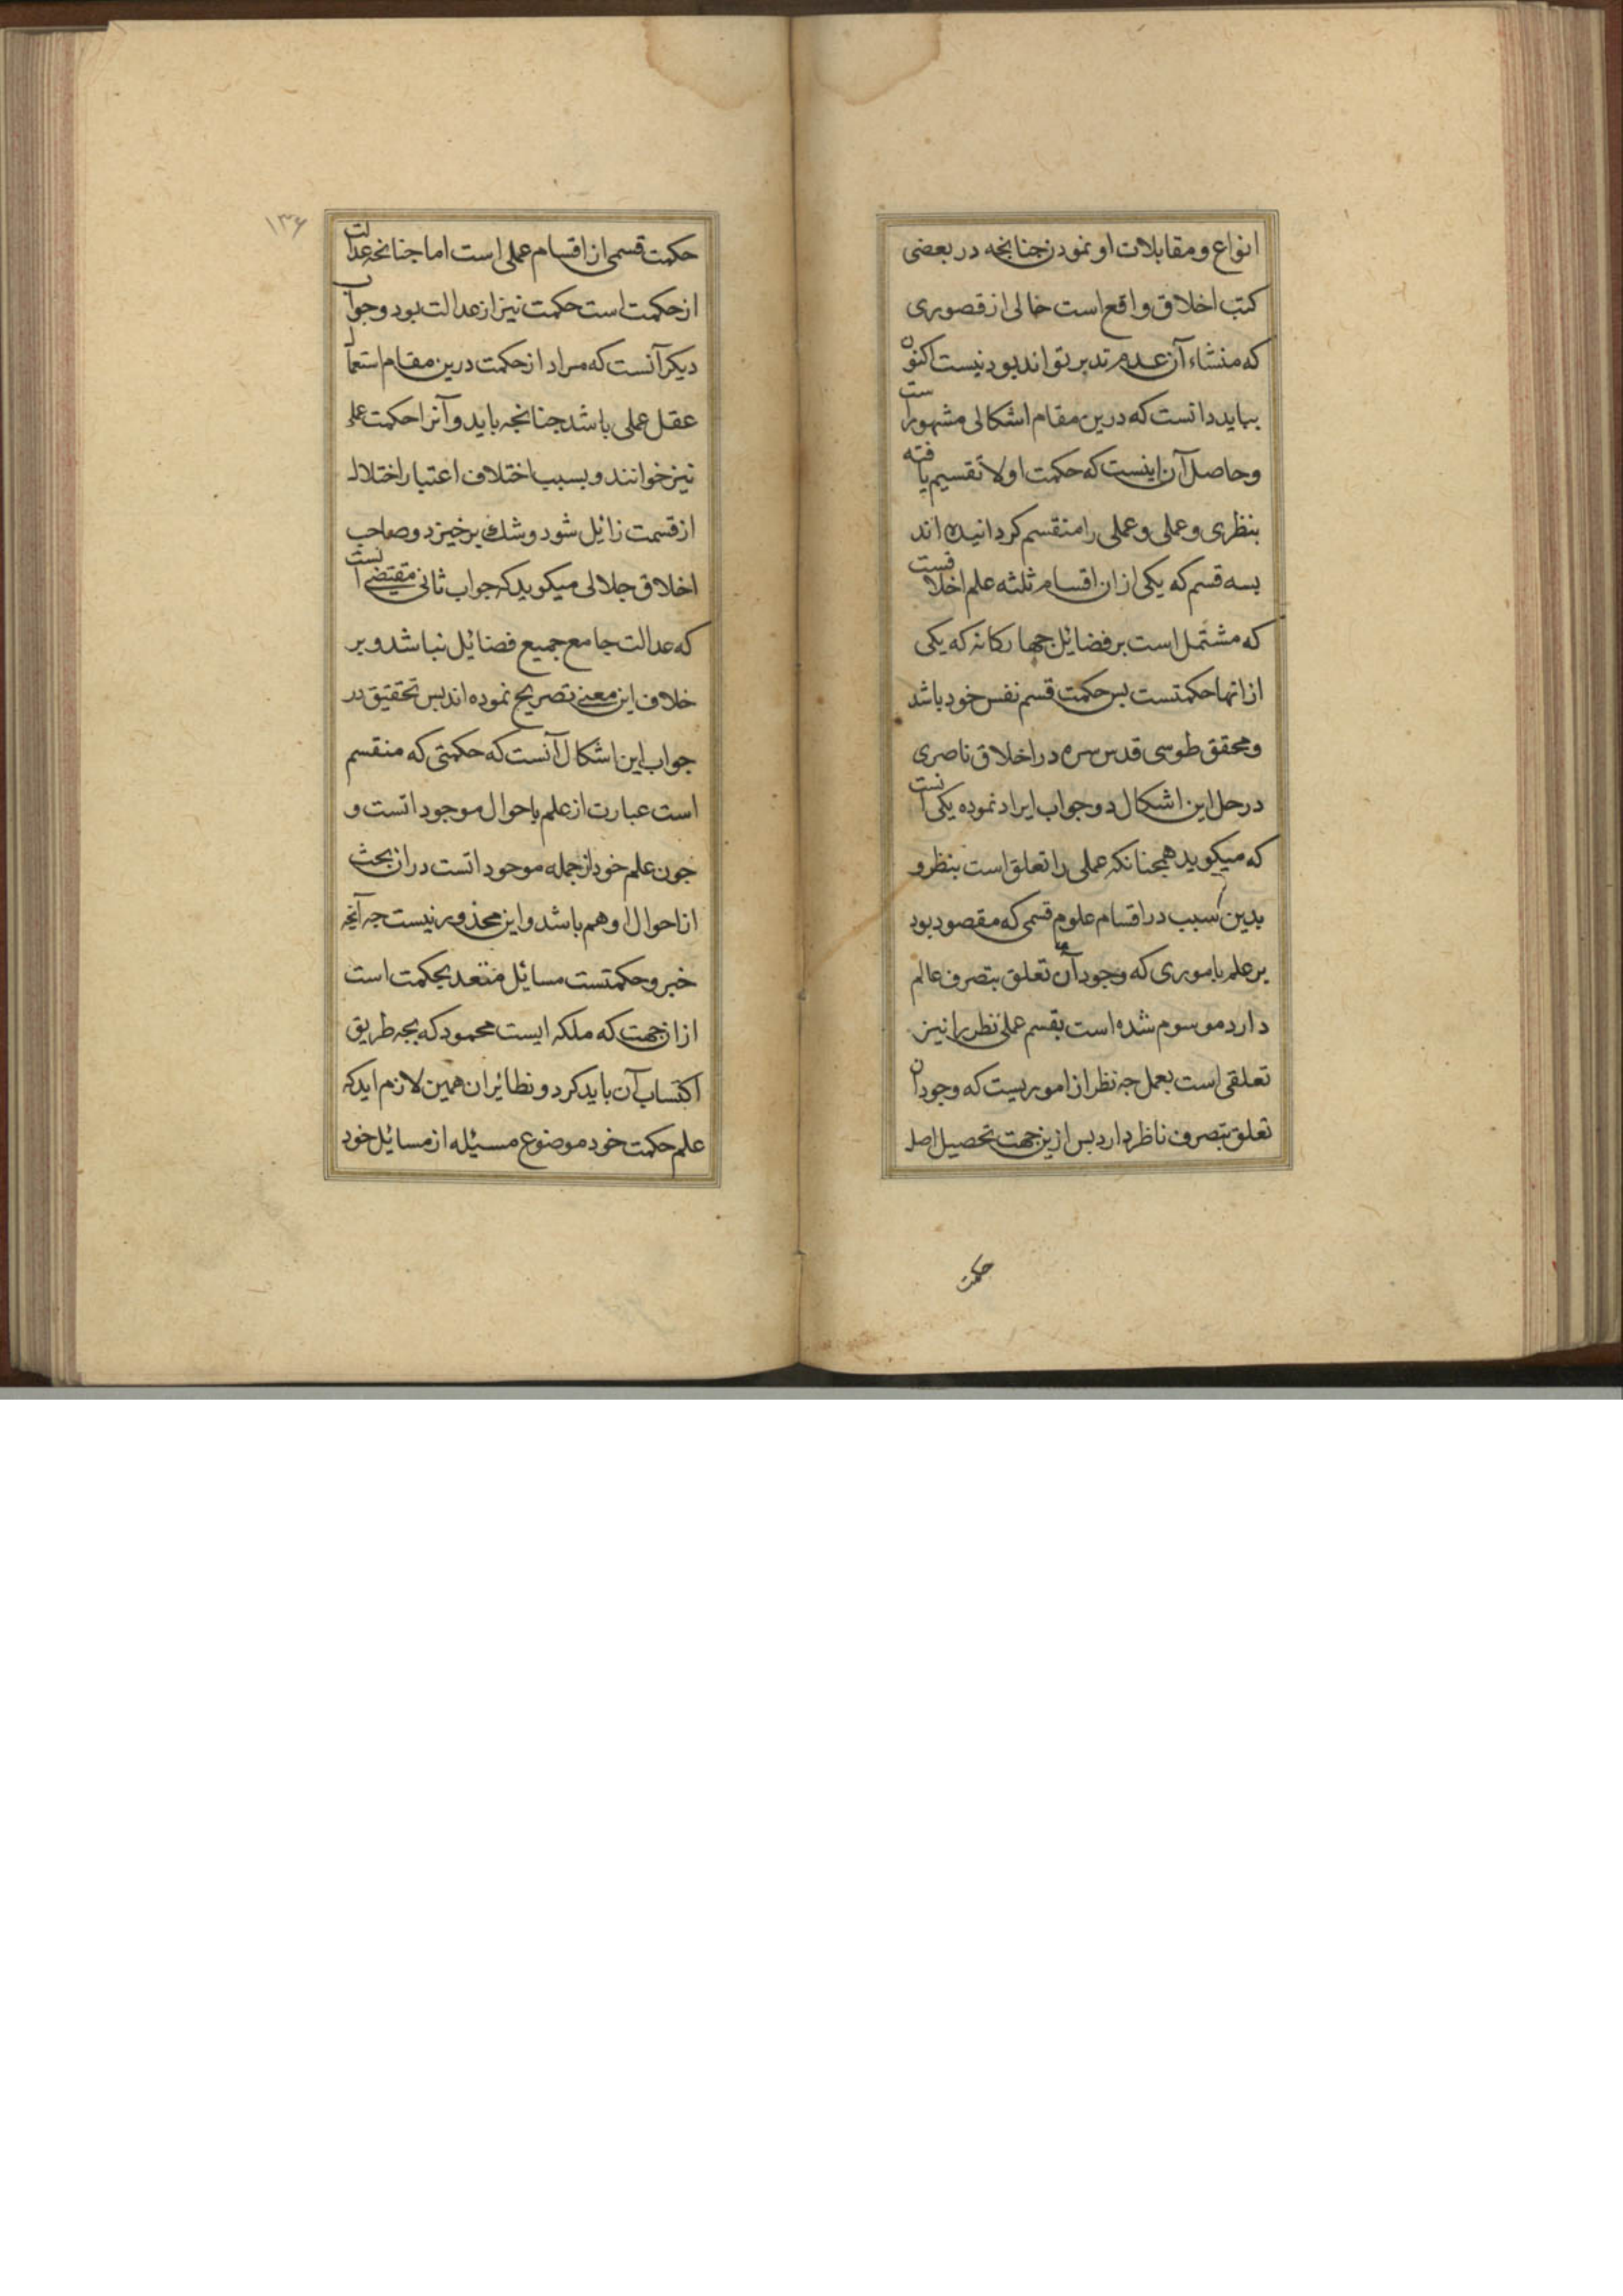 انواع و مقابلات او نمودن جنانجه در بعضی
کتب اخلاق واقع است خالی از قصوری
که منشاء آن عدم تدبر تواند بود نیست اکنون
بباید دانست که درین مقام اشکالی مشهور است
و حاصل آن اینست که حکمت اولا تقسیم یافته
بنظری و عملی و عملی را منقسم کردانیده اند
بسه قسم که یکی از ان اقسام ثلثه علم اخلاقست
که مشتمل است بر فضائل جهارکانه که یکی
از انها حکمتست بس حکمت قسم نفس خود باشد
و محقق طوسی قدس سره در اخلاق ناصری
در حل این اشکال دو جواب ایراد نموده یکی انست
که میکوید همجنانکه عملی را تعلق است بنظر و
بدین سبب در اقسام علوم قسمی که مقصود بود
بر علم باموری که وجود آن تعلق بتصرف عالم
دارد موسوم شده است بقسم عملی نظر را نیز
تعلقی است بعمل جه نظر از اموریست که وجود ان
تعلق بتصرف ناظر دارد بس ازین جهت تحصیل اصل
حکمت
۱۳۶
حکمت قسمی از اقسام عملی است اما جنانجه عدالت
از حکمت است حکمت نیز از عدالت بود و جواب
دیکر آنست که مراد از حکمت درین مقام استعمال
عقل عملی باشد جنانجه باید و آنرا حکمت عملی
نیز خوانند و بسبب اختلاف اعتبار اختلال
از قسمت زائل شود و شك برخیزد و صاحب
اخلاق جلالی میکوید که جواب ثانی مقتضی انست
که عدالت جامع جمیع فضائل نباشد و بر
خلاف این معنی تصریح نموده اند بس تحقیق در
جواب این اشکال آنست که حکمتی که منقسم
است عبارت از علم باحوال موجوداتست و
جون علم خود از جمله موجوداتست در ان بحث
از احوال او هم باشد و این محذور نیست جه آنجه
خبر و حکمتست مسائل متعد بحکمت است
از ان جهت که ملکه ایست محمود که بجه طریق
اکتساب آن باید کرد و نظائر ان همین لازم اید که
علم حکمت خود موضوع مسئله از مسائل خود